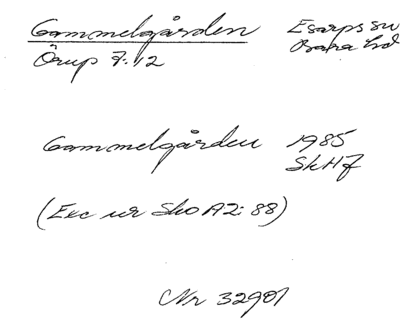 Gammelgården Esarps sn
Örup 7:12 Bara hd
Gammelgården 1985
SkHf
(Exc ur Sko A2:88)
Nr 32901